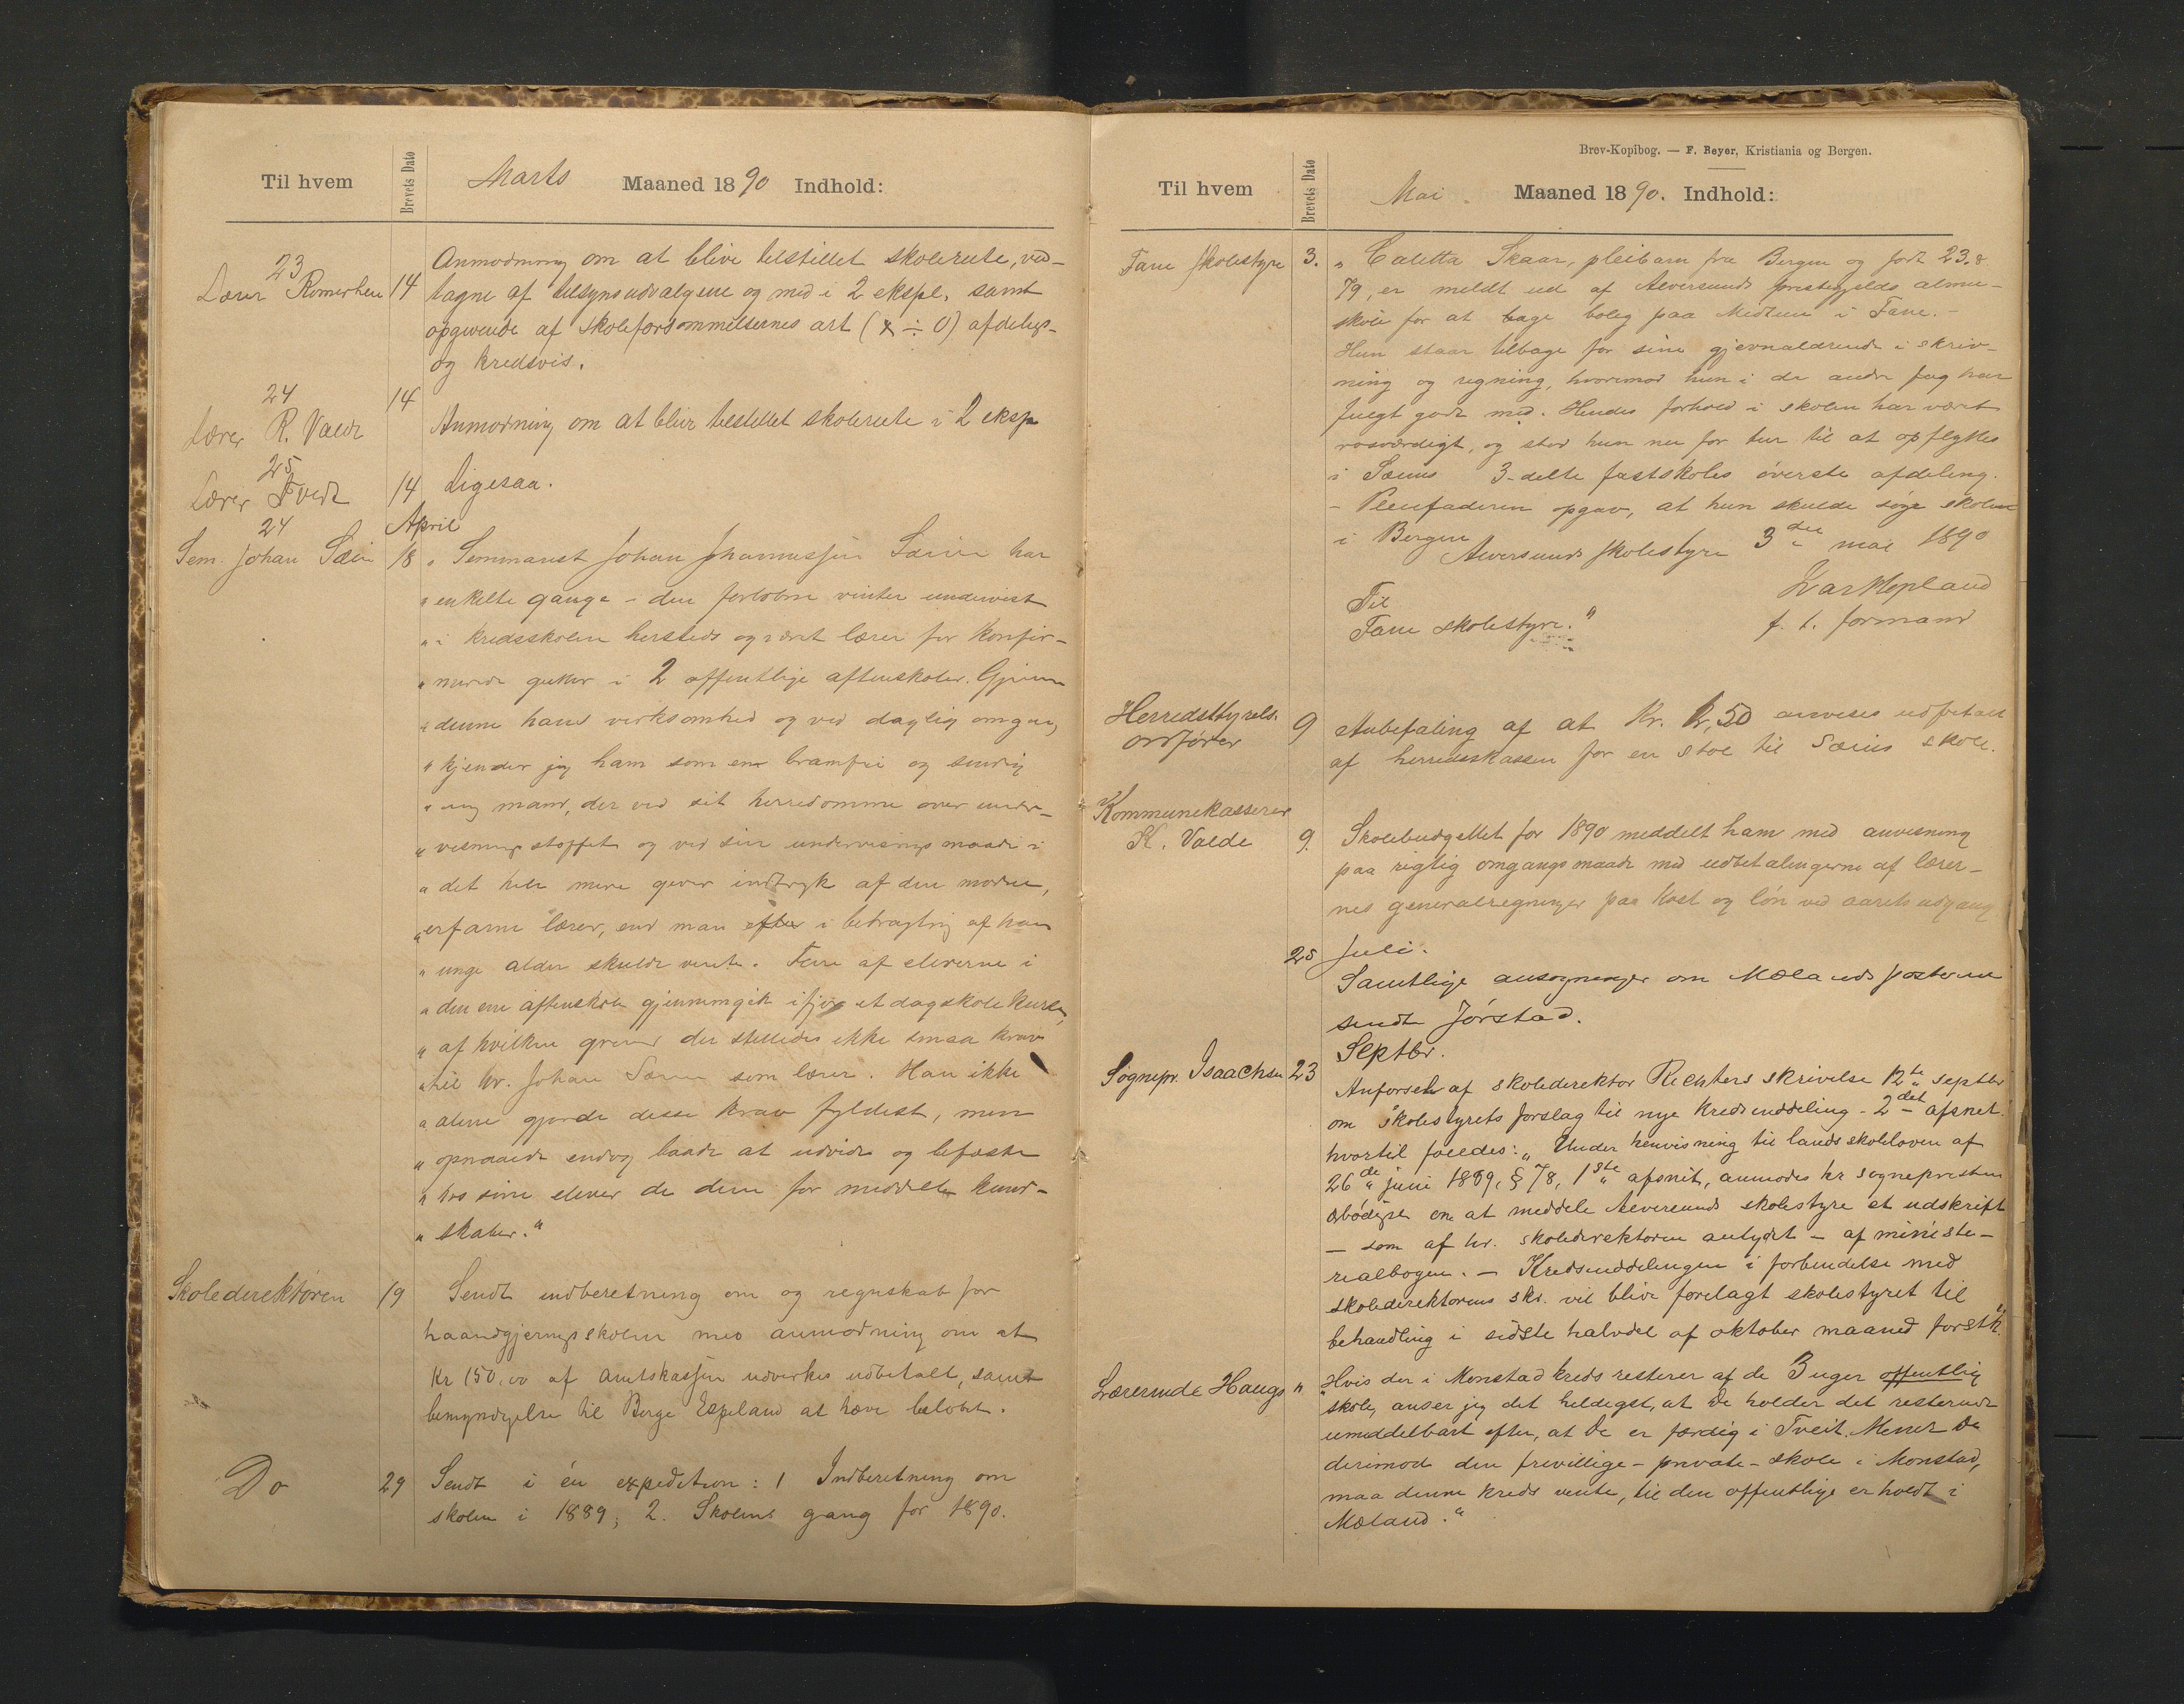 Til hvem
Brevets Dato
Marts Maaned 1890 Indhold:
23
Lærer Romerheim 14
Anmodning om at blive tilstillet skolerute, ved-
tagne af tilsynsudvalgene og med i 2 ekspl. samt
opgivende af skoleforsømmelsernes art (x ÷ 0) afdelings-
og kredsvis.
24
Lærer R. Valde 14
Anmodning om at blive tilstillet skolerute i 2 eksp
25
Lærer Tvedt 14 Ligesaa.
24 April
Sem. Johan Sæim 18 „ Seminarist Johan Johannessen Sæim har
„ enkelte gange – den forløbne vinter undervist
„ i kredsskolen hersteds og været lærer for konfir-
„ merede gutter i 2 offentlige aftenskoler. Gjennem
„ denne hans virksomhed og ved daglig omgang
„ kjender jeg ham som en bramfri og sindig
„ ung mand, der ved sit herredømme over under-
„ visningsstoffet og ved sin undervisningsmaade i
„ det hele mere giver indtryk af den modne,
„ erfarne lærer, end man efter i betragtning af hans
„ unge alder skulde vente. Flere af eleverne i
„ den ene aftenskole gjennemgik ifjor et dagskole kursus,
„ af hvilken grund der stilledes ikke smaa krav
„ til hr. Johan Sæim som lærer. Han ikke
„ alene gjorde desse krav fyldest, men
„ opnaaede endog baade at udvide og befæste
„ hos sine elever de dem før meddelte kund-
„ skaber.“
Skoledirektøren 19 Sendt indberetning om og regnskab for
haandgjerningsskolen med anmodning om at
Kr 150,00 af Amtskassen udvirkes udbetalt, samt
bemyndigelse til Børge Espeland at hæve beløbet.
Do 29 Sendt i én expedition: 1 Indberetning om
skolen i 1889; 2. Skolens gang for 1890.
Brev-Kopibog. — F. Beyer, Kristiania og Bergen.
Til hvem
Brevets Dato
Mai Maaned 1890. Indhold:
Fane skolestyre 3. „ Caletta Skaar, pleiebarn fra Bergen og født 23.8
79, er meldt ud af Alversunds prestegjelds almu-
skole for at tage bolig paa Midtun i Fane. –
Hun staar tilbage for sine gjevnaldrende i skriv-
ning og regning, hvorimod hun i de andre fag har
fulgt godt med. Hendes forhold i skolen har været
rosværdigt, og stod hun nu for tur til at opflyttes
i Sæims 3-delte fastskoles øverste afdeling.
– Pleiefaderen opgav, at hun skulde søge skolen
i Bergen
Alversunds skolestyre 3die mai 1890
Lars Hopland
f. t. formand
Til
Fane skolestyre.“
Herredsstyrels.
ordfører 9 Anbefaling af at Kr. 2,50 anvises udbetalt
af herredskassen for en stol til Sæims skole.
Kommunekasserer
K. Valde 9. Skolebudgettet for 1890 meddelt ham med anvisning
paa rigtig omgangsmaade med udbetalingerne af lærer-
nes generalregninger paa kost og løn ved aarets udgang
25 Juli.
Samtlige ansøgninger om Mælands posterne
sendt Jørstad.
Septbr.
Sognepr. Isaachsen 23
Anførsel af skoledirektør Richters skrivelse 12te septbr
om skolestyrets forslag til nye kredsinddeling – 2det afsnit.
hvortil føiedes: „Under henvisning til landsskoleloven af
26de juni 1889, § 78, 1ste afsnit, anmodes hr sognepresten
ærbødigst om at meddele Alversunds skolestyre et udskrift
– som af hr. skoledirektøren antydet – af ministe-
rialbogen. – Kredsinddelingen i forbindelse med
skoledirektørens skr. vil blive forelagt skolestyret til
behandling i sidste halvdel af oktober maaned førstk.“
Lærerinde Haugs „ „Hvis der i Monstad kreds resterer af de 3 uger offentlig
skole, anser jeg det heldigst, at De holder det resterende
umiddelbart efter, at De er færdig i Tveit. Mener De
derimod den frivillige – private – skole i Monstad,
maa denne kreds vente, til den offentlige er holdt i
Mæland.“